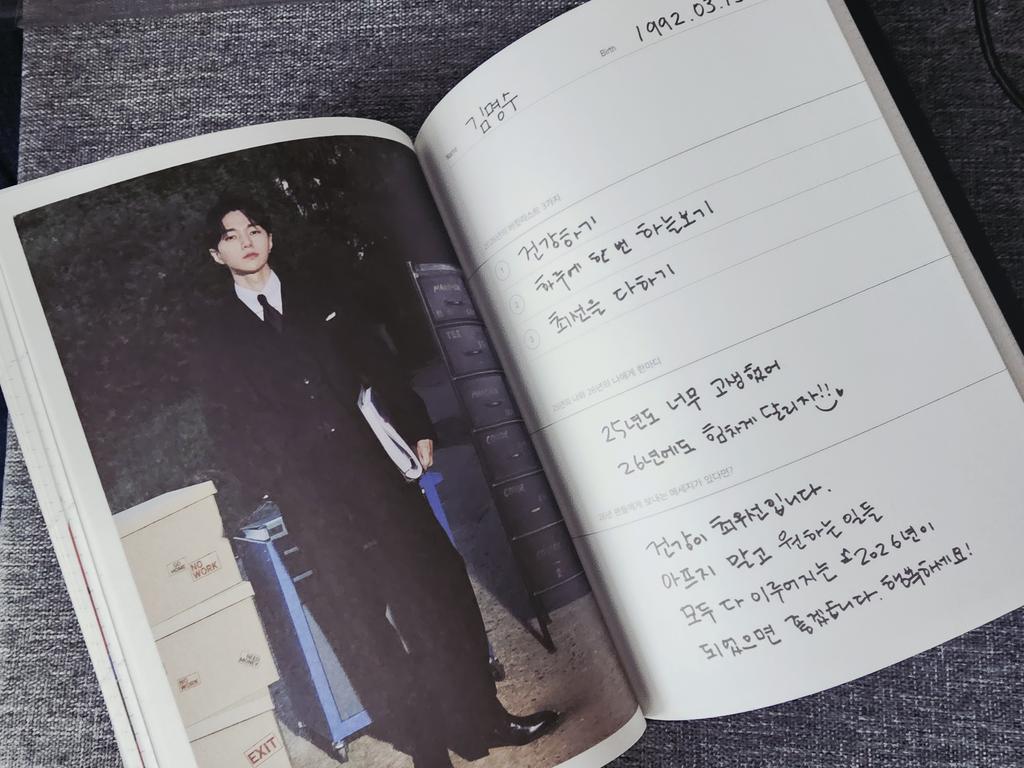 NO WORK
NO WORK
NEED MONEY
NO WORK
EXIT
Birth
1992.03.13
Name
김명수
2026년의 버킷리스트 3가지
1 건강하기
2 하루에 한 번 하늘보기
3 최선을 다하기
25년의 나와 26년의 나에게 한마디
25년도 너무 고생했어
26년에도 힘차게 달리자!!
26년 팬들에게 보내는 메세지가 있다면?
건강이 최우선입니다.
아프지 말고 원하는 일들
모두 다 이루어지는 2026년이
되었으면 좋겠습니다. 행복하세요!